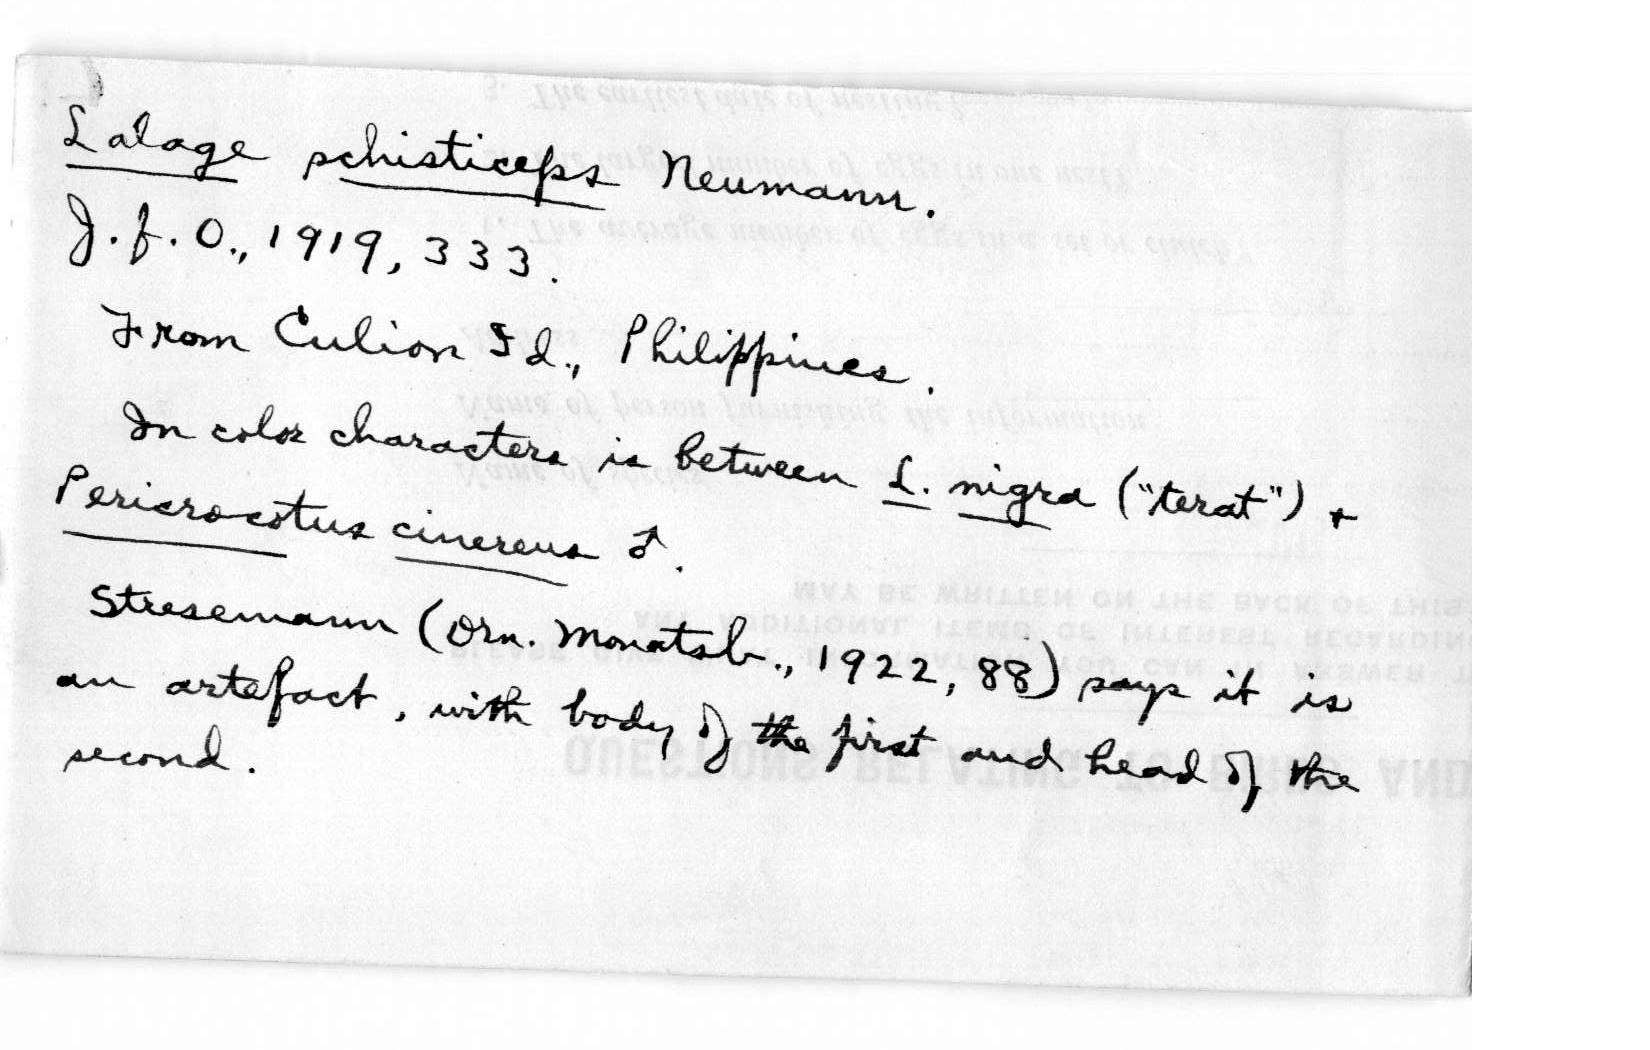 Lalage schisticeps Neumann.
J. f. O., 1919, 333.
From Culion Id., Philippines.
In color characters is between L. nigra ("terat") +
Pericrocotus cinereus ♂.
Stresemann (Orn. Monatsb., 1922, 88) says it is
an artefact, with body of the first and head of the
second.